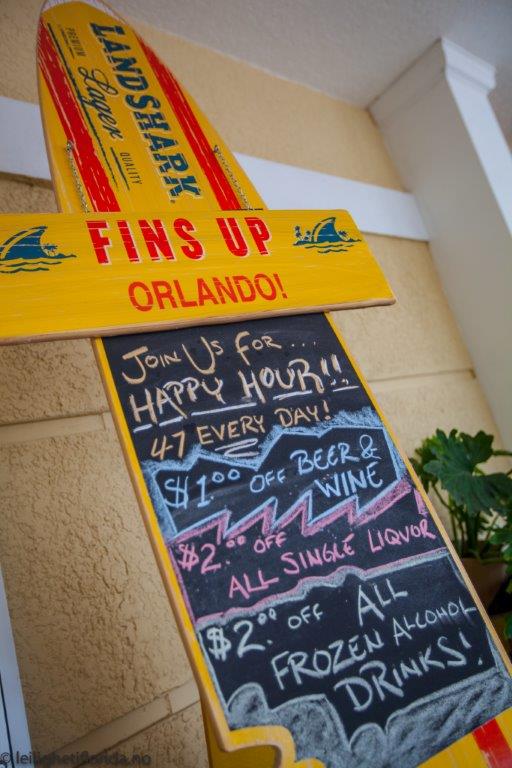 LANDSHARK
PREMIUM Lager QUALITY
FINS UP
ORLANDO!
JOIN US FOR...
HAPPY HOUR!!
47 EVERY DAY!
$1.00 OFF BEER &
WINE
$2.00 OFF
ALL SINGLE LIQUOR
$2.00 OFF ALL
FROZEN ALCOHOL
DRINKS!
©leilighetiflorida.no